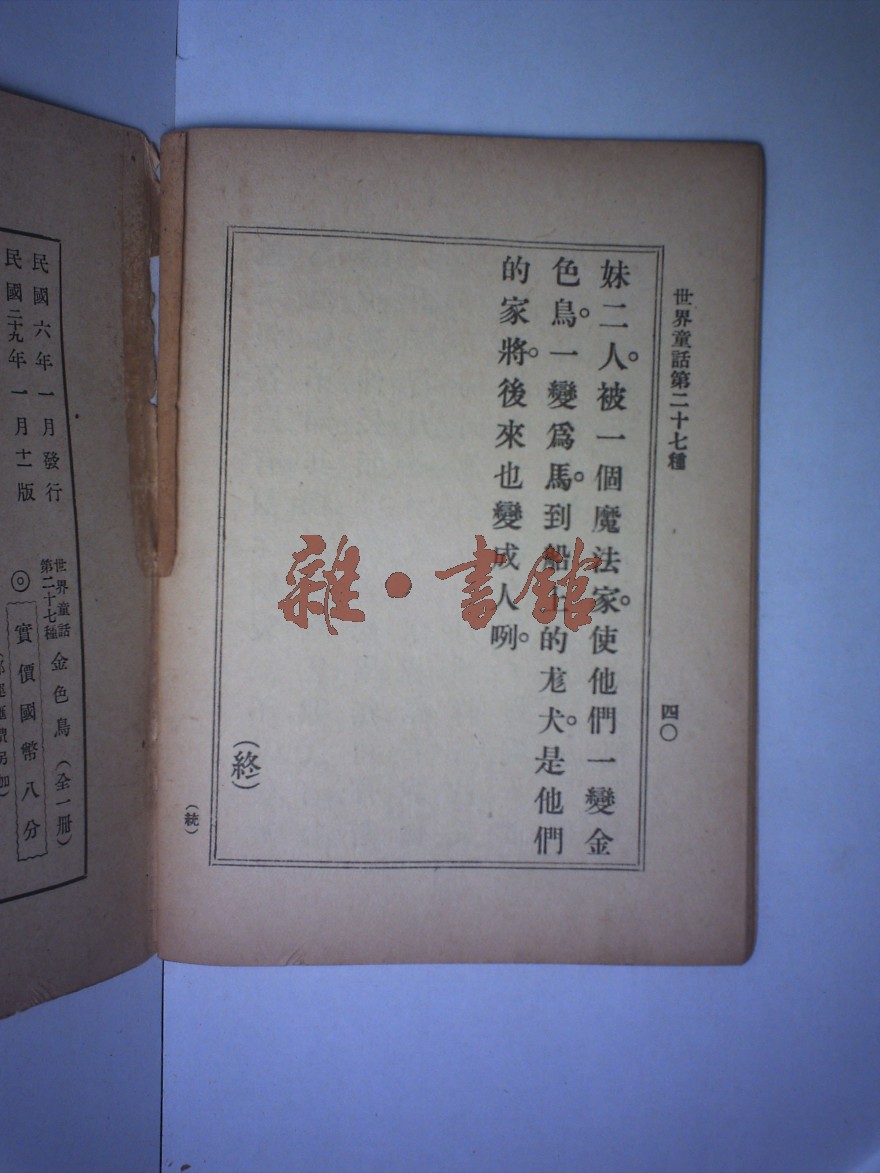 世界童話第二十七種
四〇
妹二人。被一個魔法家。使他們一變金
色鳥。一變爲馬。到船上的尨犬。是他們
的家將。後來也變成人咧。
(終)
(統)
雜·書館
世界童話
第二十七種
金色鳥(全一冊)
◎實價國幣八分
民國六年一月發行
民國二十九年一月十一版